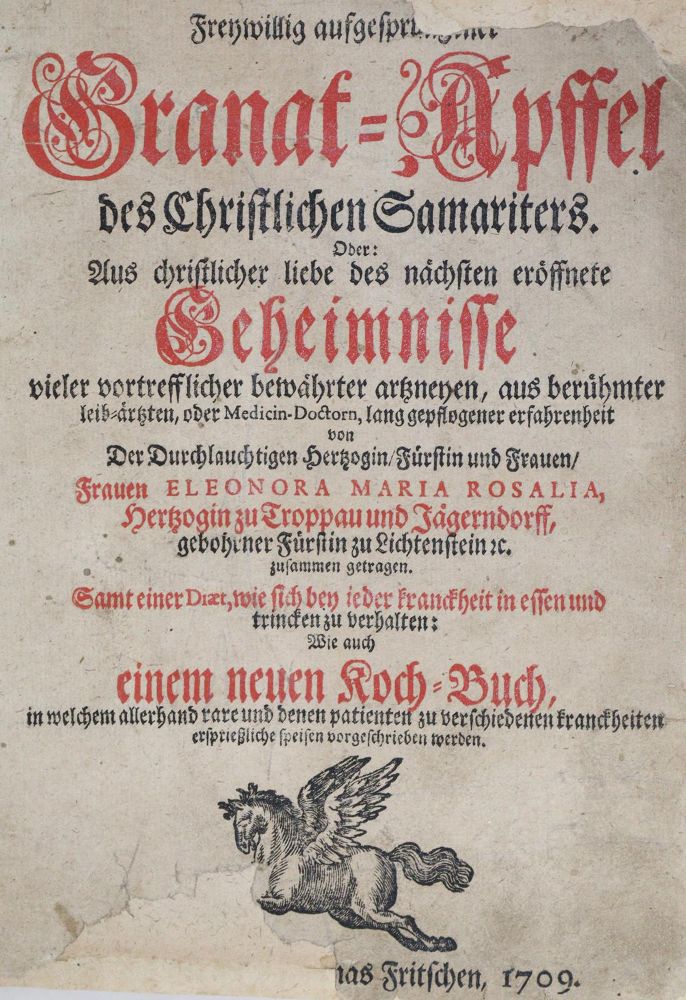 Freywillig
Granat-Apffel
des Christlichen Samariters.
Oder:
Aus christlicher liebe des nächsten eröffnete
Geheimnisse
vieler vortrefflicher bewährter artzneyen, aus berühmter
leib-ärtzten, oder Medicin-Doctorn, lang gepflogener erfahrenheit
von
Der Durchlauchtigen Hertzogin/Fürstin und Frauen/
Frauen ELEONORA MARIA ROSALIA,
Hertzogin zu Troppau und Jägerndorff,
gebohrner Fürstin zu Lichtenstein ꝛc.
zusammen getragen.
Samt einer Diæt, wie sich bey ieder kranckheit in essen und
trincken zu verhalten:
Wie auch
einem neuen Koch-Buch,
in welchem allerhand rare und denen patienten zu verschiedenen kranckheiten
ersprießliche speisen vorgeschrieben werden.
Fritschen, 1709.